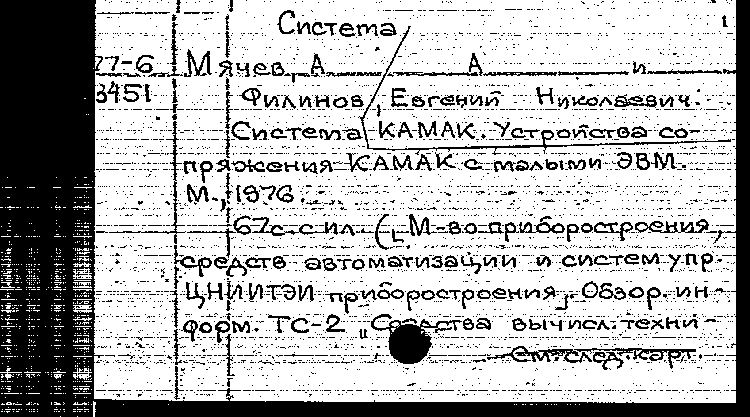 Система
77-6 Мячев, А А и
3451 Филинов, Евгений Николаевич.
Система КАМАК. Устройства со-
пряжения КАМАК с малыми ЭВМ.
М., 1976.
67с. с ил. ([М-во приборостроения,
средств автоматизации и систем упр.
ЦНИИТЭИ приборостроения]. Обзор. ин-
форм. ТС-2 „Средства вычисл. техни-
См. след. карт.